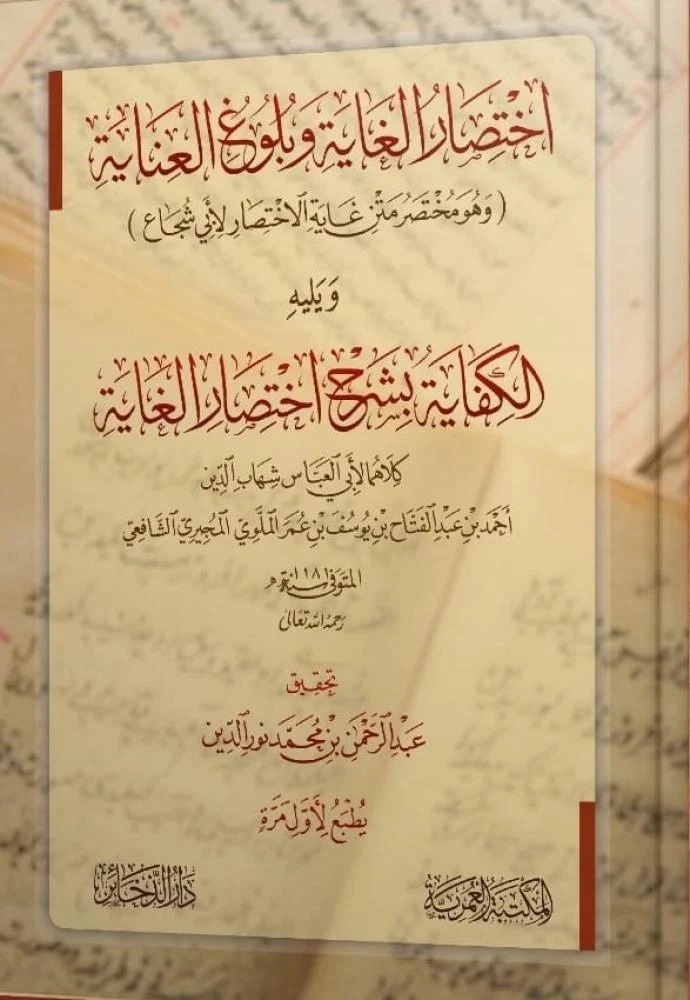 اخْتِصَارُ الغَايَةِ وَبُلُوغُ العِنَايَةِ
( وَهُوَ مُخْتَصَرُ مَتْنِ غَايَةِ الِاخْتِصَارِ لِأَبِي شُجَاع )
وَيَلِيهِ
الكِفَايَةُ بِشَرْحِ اخْتِصَارِ الغَايَةِ
كِلَاهُمَا لِأَبِي العَبَّاسِ شِهَابِ الدِّينِ
أَحْمَدَ بْنِ عَبْدِ الفَتَّاحِ بْنِ يُوسُفَ بْنِ عُمَرَ المَلَّوِيِّ المُجِيرِيِّ الشَّافِعِيِّ
المتوفى سنة ١١٨١ هـ
رحمه الله تعالى
تحقيق
عَبْدِ الرَّحْمٰنِ بْنِ مُحَمَّد نُورِ الدِّين
يُطْبَعُ لِأَوَّلِ مَرَّةٍ
المَكْتَبَةُ العُمَرِيَّةُ
دَارُ الذَّخَائِرِ